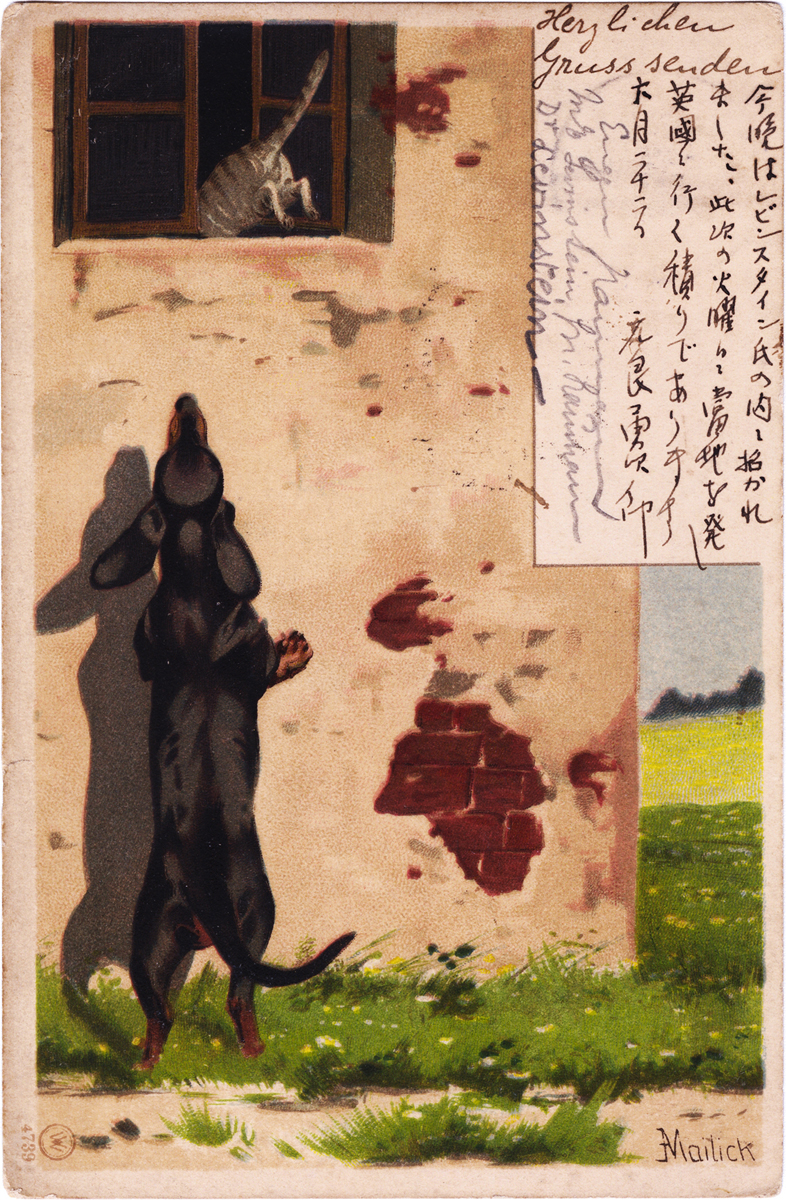 Herzlichen
Gruss senden
今晩はレビンスタイン氏の内に招かれ
ました、此次の火曜日に當地を発し
英國に行く積りであります
六月二十二日
元良勇次郎
Eugen
Levinstein, M.
Dr Levinstein
Mailick
4739
W